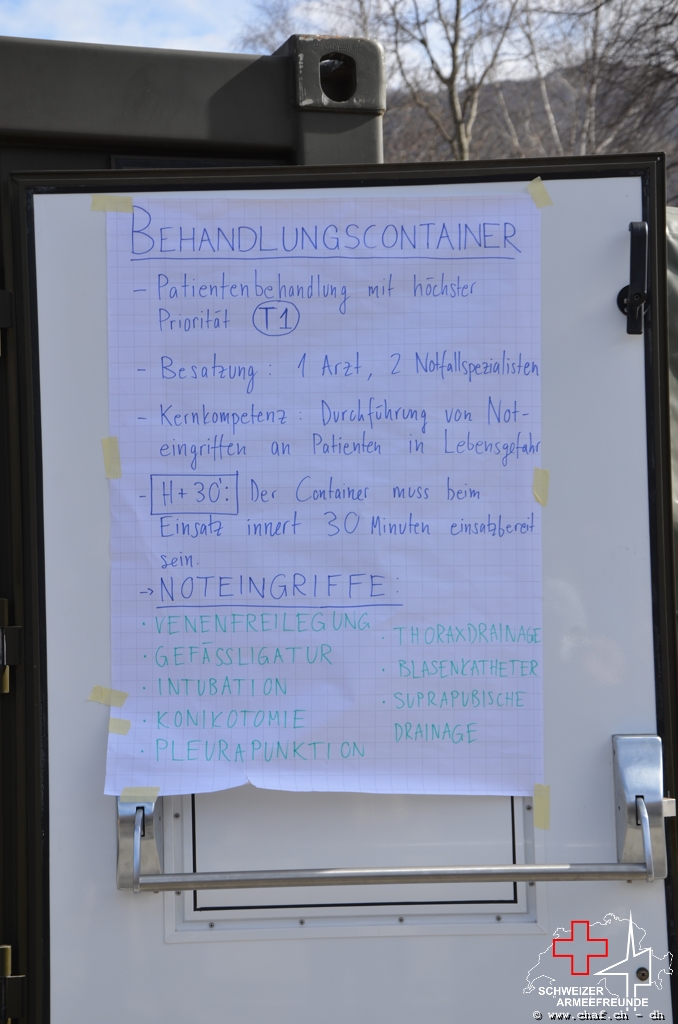 BEHANDLUNGSCONTAINER
- Patientenbehandlung mit höchster
Priorität T1
- Besatzung : 1 Arzt, 2 Notfallspezialisten
- Kernkompetenz : Durchführung von Not-
eingriffen an Patienten in Lebensgefahr
- H+30': Der Container muss beim
Einsatz innert 30 Minuten einsatzbereit
sein.
→ NOTEINGRIFFE:
· VENENFREILEGUNG
· GEFÄSSLIGATUR
· INTUBATION
· KONIKOTOMIE
· PLEURAPUNKTION
· THORAXDRAINAGE
· BLASENKATHETER
· SUPRAPUBISCHE
DRAINAGE
SCHWEIZER
ARMEEFREUNDE
© www.chaf.ch - dh